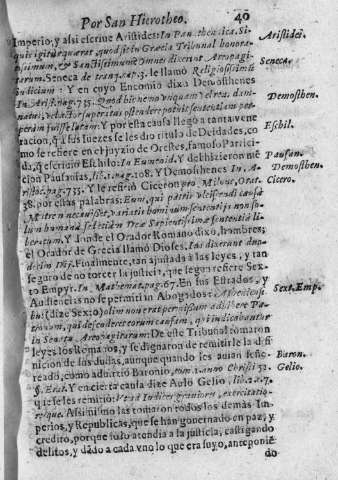 Por San Hierotheo.
40
Imperio, y assi escriue Aristides: In Panathenaica. Si
quis igitur quærat, quod sit in Græcia Tribunal honora-
tissimum, & Sanctissimum: omnes dicent Areopagi-
tarum. Seneca de tranq. cap. 3. le llamó Religiosissimũ
Iudicium: Y en cuyo Encomio dixo Demosthenes
In Arist. pag. 735. Quod hic nemo vnquam vel reus, dam-
natus, vel actor superatus ostendere potuit sententiam per-
peram fuisse latam: Y por esta causa llegó a tanta vene-
racion, q̃ a sus Iuezes se les dió titulo de Deidades, co
mo se refiere en el juyzio de Orestes, famoso Parrici-
da, q̃ escriuió Eschilo: In Eumenid. Y de
cion Pausanias, lib. 1. pag. 108. Y Demosthenes In. A-
ristoc. pag. 735. Y le refirió Ciceron pro Milone, Orat.
38. por estas palabras: Eum, qui patris vlciscendi causâ
Matrem necauisset, variatis hominum sententijs non so-
lum humana, sed etiam Deæ Sapientissimæ sententiâ li-
beratum. Y donde el Orador Romano dixo, hombres;
el Orador de Grecia llamó Dioses.
Finalmente, tan ajustada à las leyes, y tan
seguro de no torcer la justicia, que segun refiere Sex-
to Empyr. In Mathemat. pag. 67. En sus Estrados, y
Audiencias no se permitian Abogados: Atheniensi-
bus (dize Sexto) olim non erat permissum adhibere Pa-
tronum, qui defenderet eorum causam, qui iudicabantur
in Senatu Areopagitarum: De este Tribunal tomaron
leyes los Romanos, y se dignaron de remitirle la difi
nicion de sus dudas, aunque quando les auian
como aduirtió Baronio, tom. 1. anno Christi 52.
§. Erat. Y en cierta causa dize Aulo Gelio, lib. 12. 7.
que se les remitió: Veræ Iudices grauiores, exercitatio-
resque. Assimismo las tomaron todos los demás Im-
perios, y Republicas, que se han gouernado en paz, y
credito, porque solo atendia a la justicia, castigando
delitos, y dãdo a cada vno lo que era suyo, anteponie
do
Aristidei.
Seneca.
Demosthen.
Eschil.
Pausan.
Demosthen.
Cicero.
Sext. Emp.
Baron.
Gelio.